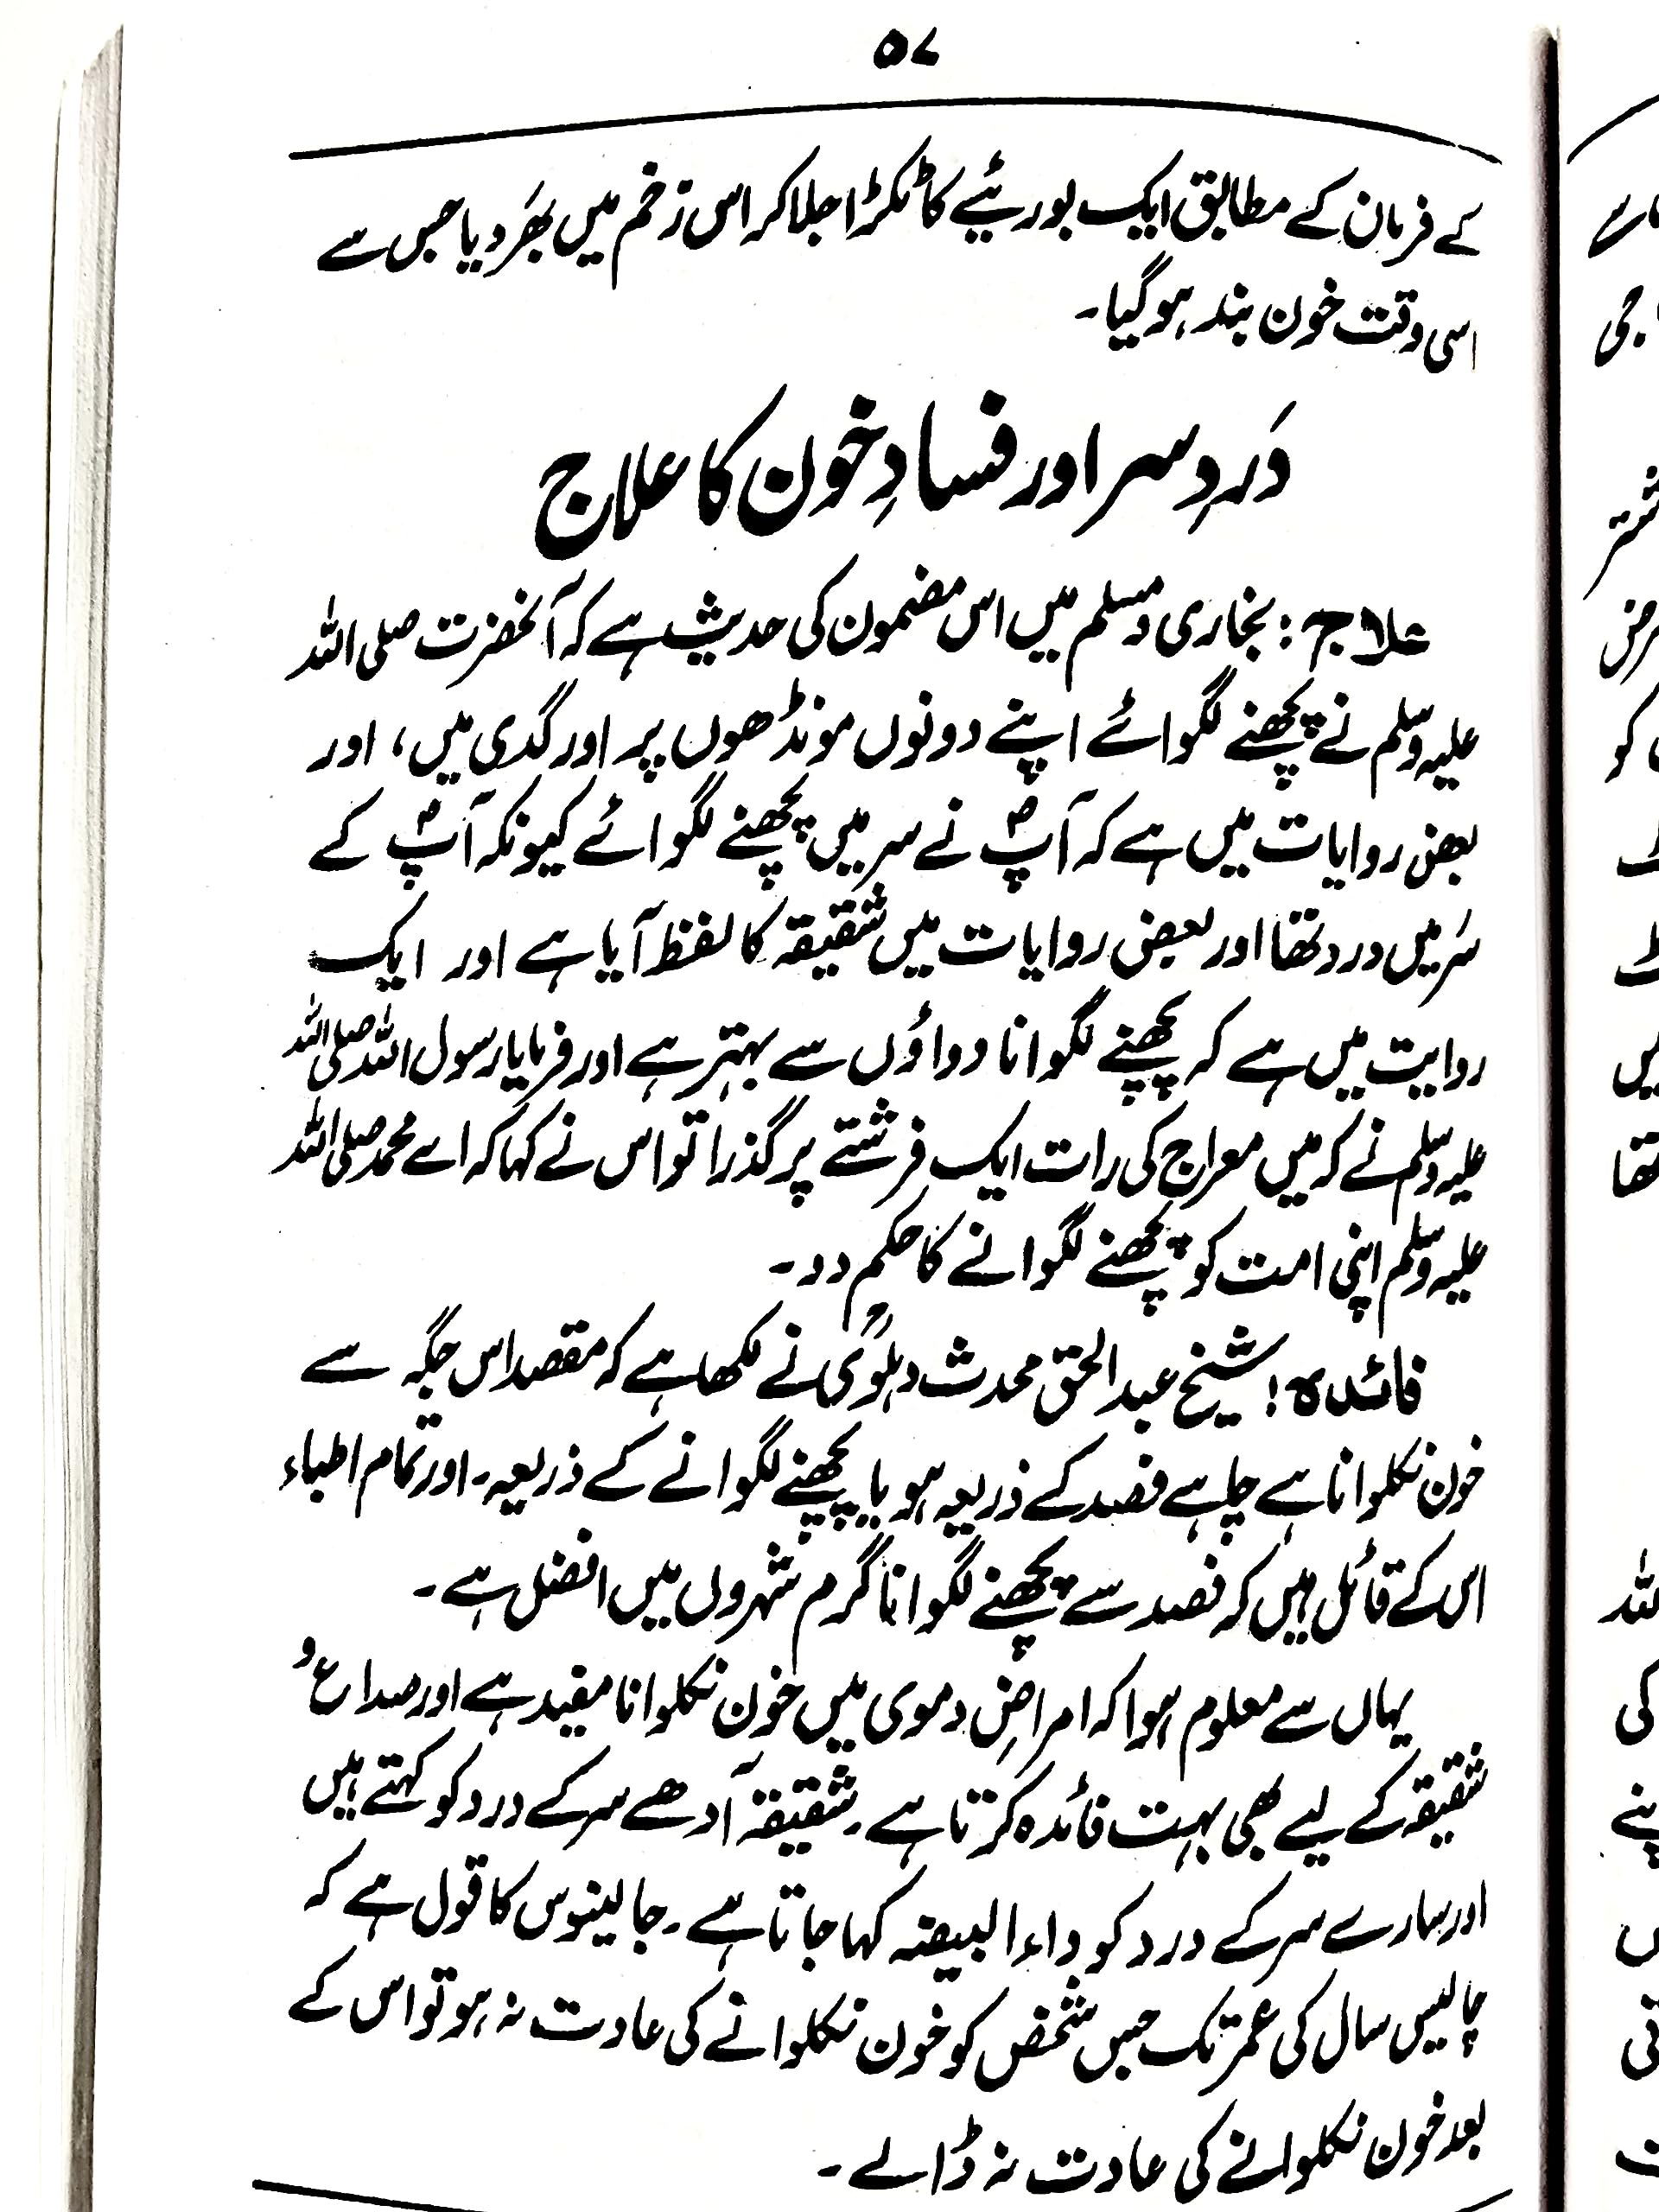 ۵۷
کے فرمان کے مطابق ایک بورئیے کا ٹکڑا جلا کر اس زخم میں بھَر دیا جس سے
اسی وقت خون بند ہوگیا۔
دَردِ سر اور فسادِ خون کا علاج
علاج : بخاری و مسلم میں اس مضمون کی حدیث ہے کہ آنحضرت صلی اللہ
علیہ وسلم نے پچھنے لگوائے اپنے دونوں مونڈھوں پر اور گدی میں، اور
بعض روایات میں ہے کہ آپؐ نے سر میں پچھنے لگوائے کیونکہ آپؐ کے
سَر میں درد تھا اور بعض روایات میں شقیقہ کا لفظ آیا ہے اور ایک
روایت میں ہے کہ پچھنے لگوانا دواؤں سے بہتر ہے اور فرمایا رسول اللہ صلی اللہ
علیہ وسلم نے کہ میں معراج کی رات ایک فرشتے پر گذرا تو اس نے کہا کہ اے محمد صلی اللہ
علیہ وسلم اپنی امت کو پچھنے لگوانے کا حکم دد۔
فائدہ : شیخ عبد الحق محدث دہلویؒ نے لکھا ہے کہ مقصد اس جگہ سے
خون نکلوانا ہے چاہے فصد کے ذریعہ ہو یا پچھنے لگوانے کے ذریعہ۔ اور تمام اطباء
اس کے قائل ہیں کہ فصد سے پچھنے لگوانا گرم شہروں میں افضل ہے۔
یہاں سے معلوم ہوا کہ امراضِ دموی میں خون نکلوانا مفید ہے اور صداع و
شقیقہ کے لیے بھی بہت فائدہ کرتا ہے۔ شقیقہ آدھے سر کے درد کو کہتے ہیں
اور سارے سر کے درد کو داء البیضہ کہا جاتا ہے۔ جالینوس کا قول ہے کہ
چالیس سال کی عمر تک جس شخص کو خون نکلوانے کی عادت نہ ہو تو اس کے
بعد خون نکلوانے کی عادت نہ ڈالے۔